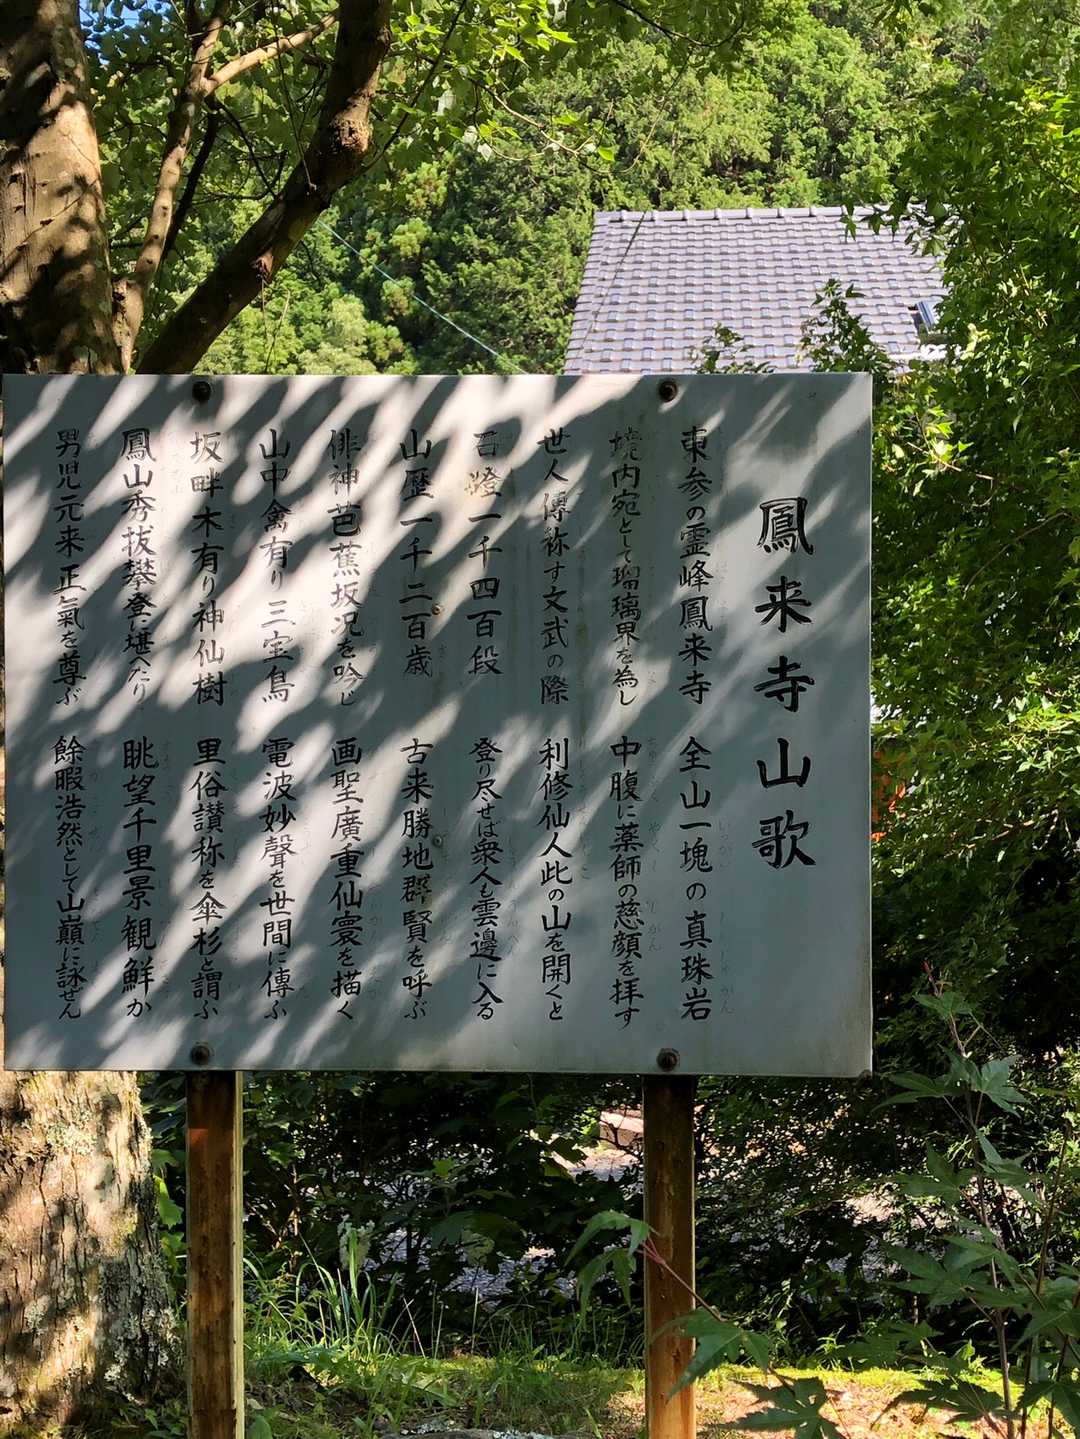 鳳来寺山歌
東参の霊峰鳳来寺 全山一塊の真珠岩
境内宛として瑠璃界を為し 中腹に薬師の慈顔を拝す
世人傳称す文武の際 利修仙人此の山を開くと
石燈一千四百段 登り尽せば衆人も雲邊に入る
山歴一千二百歳 古来勝地群賢を呼ぶ
俳神芭蕉坂况を吟じ 画聖廣重仙寰を描く
山中禽有り三宝鳥 電波妙聲を世間に傳ふ
坂畔木有り神仙樹 里俗讃称を傘杉と謂ふ
鳳山秀抜攀登に堪へたり 眺望千里景観鮮か
男児元来正氣を尊ぶ 餘暇浩然として山巓に詠ぜん